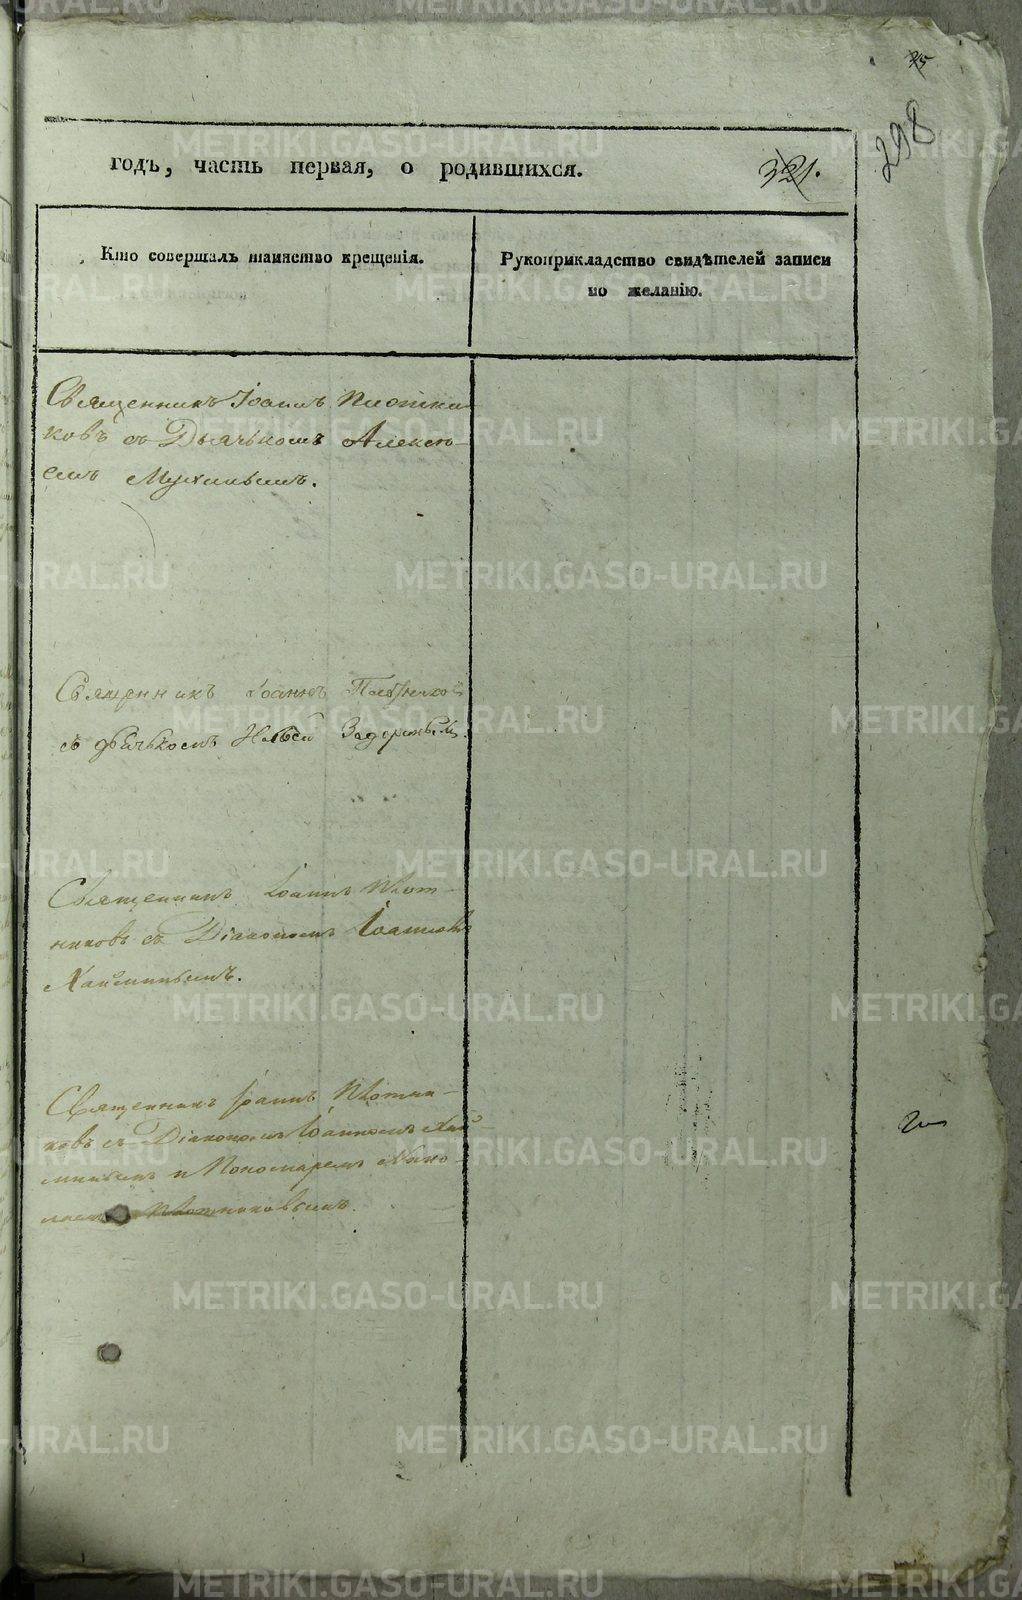 298
годъ, часть первая, о родившихся. 321.
Кто совершалъ таинство крещенія.
Рукоприкладство свидѣтелей записи
по желанію.
Священникъ Іоаннъ Плотни
ковъ съ Дьячькомъ Алексѣ-
емъ Мухинымъ.
Священникъ Іоаннъ Плотников
съ дьячькомъ
Священникъ Іоаннъ Плот-
никовъ съ Діакономъ Іоанномъ
Священникъ Іоаннъ Плотни-
ковъ съ Діакономъ Іоанномъ
и Пономаремъ Нико-
лаемъ Плотниковымъ.
METRIKI.GASO-URAL.RU